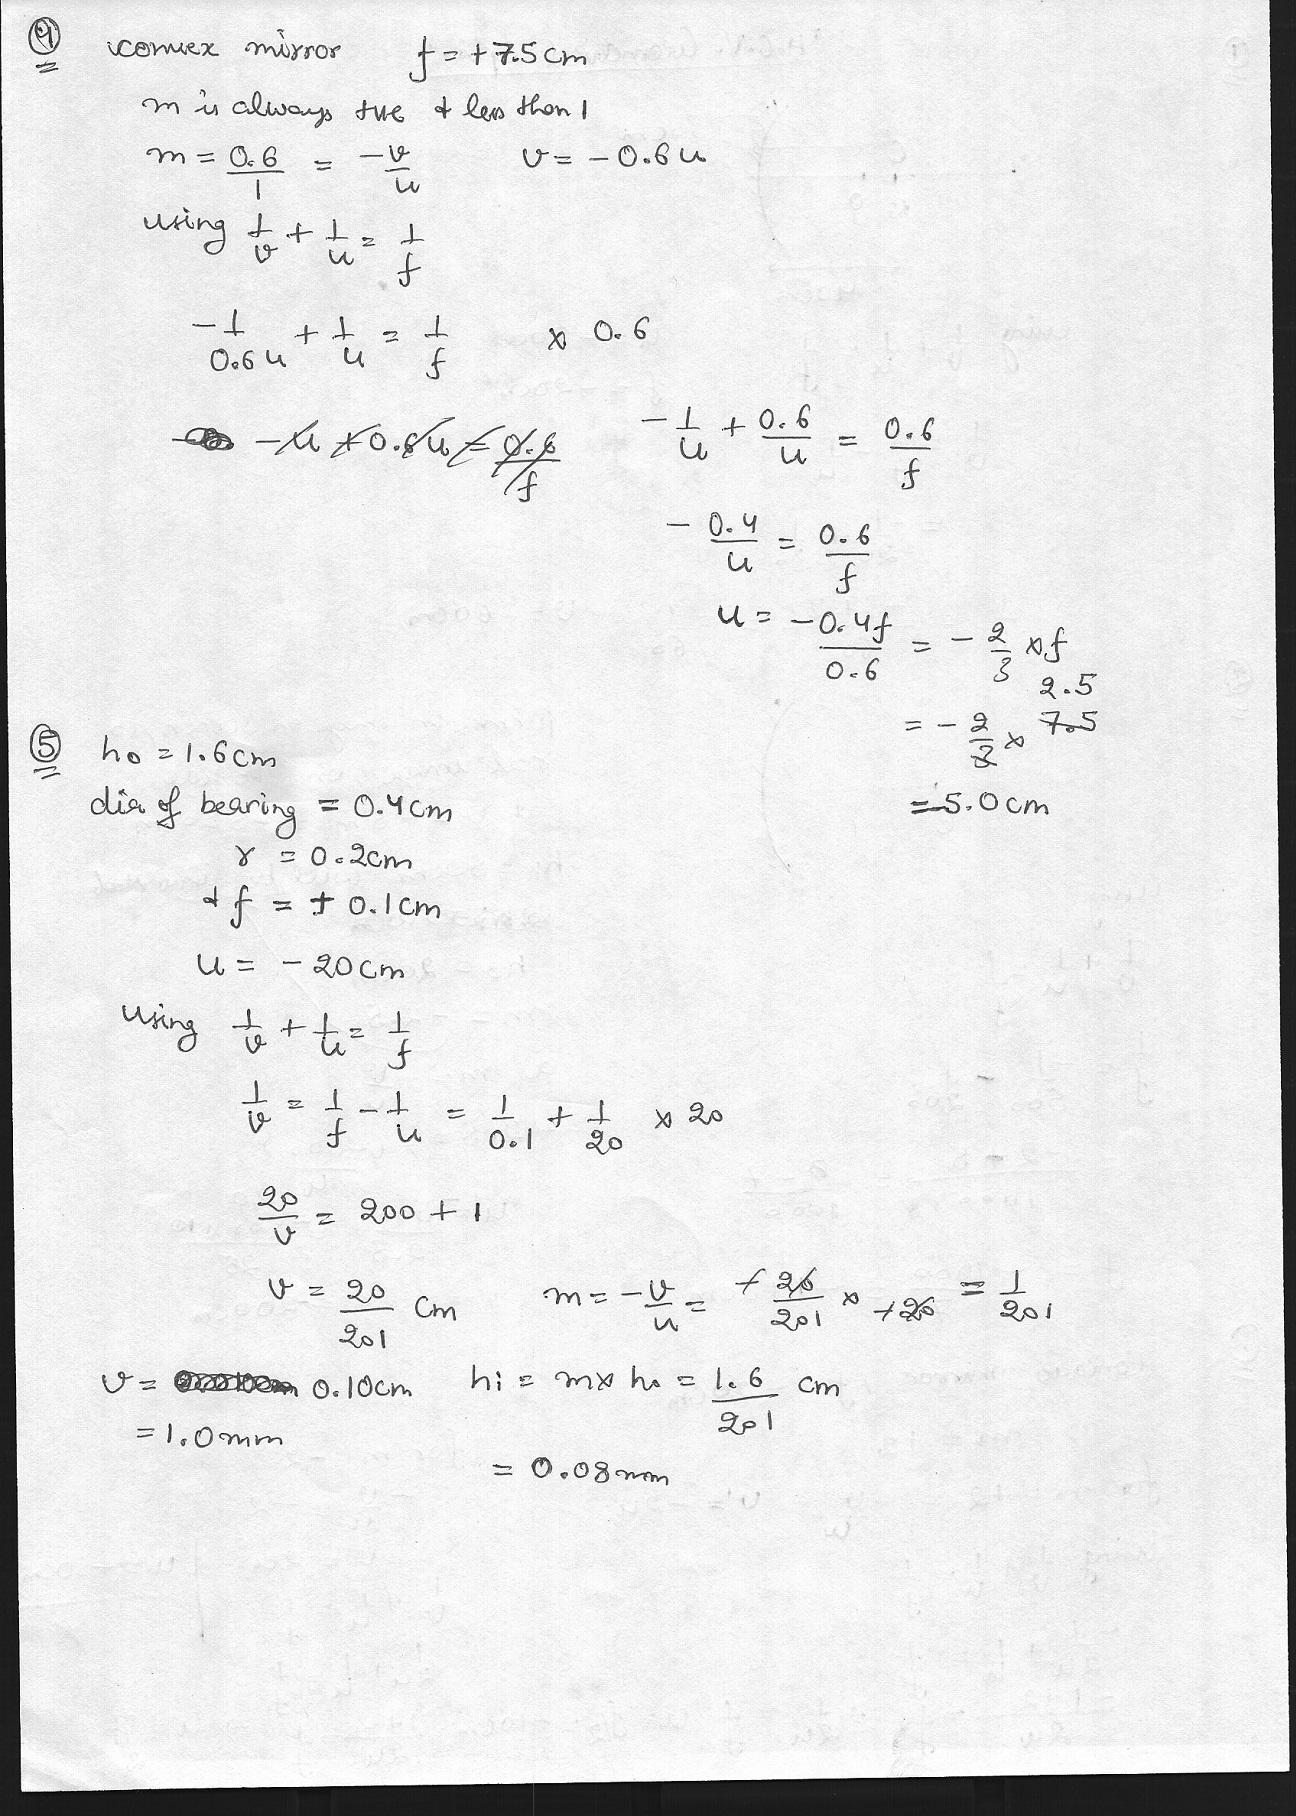 4 convex mirror f = +7.5cm
m is always +ve & less than 1
m = 0.6/1 = -v/u v = -0.6u
using 1/v + 1/u = 1/f
-1/0.6u + 1/u = 1/f × 0.6
-u + 0.6u = 0.6/f
-1/u + 0.6/u = 0.6/f
-0.4/u = 0.6/f
u = -0.4f/0.6 = -2/3 × f
= -2/3 × 7.5 2.5
= -5.0cm
5 ho = 1.6cm
dia of bearing = 0.4cm
r = 0.2cm
& f = + 0.1cm
u = -20cm
Using 1/v + 1/u = 1/f
1/v = 1/f - 1/u = 1/0.1 + 1/20 × 20
20/v = 200 + 1
v = 20/201 cm m = -v/u = +20/201 × +20 = 1/201
v = 0.10cm hi = m × ho = 1.6/201 cm
= 1.0mm
= 0.08mm